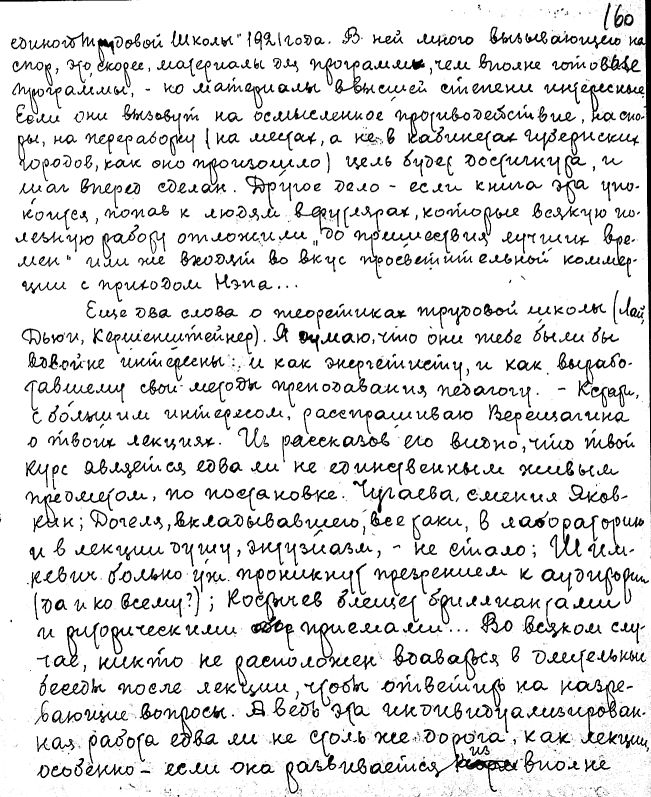 160
единой трудовой Школы" 1921 года. В ней много вызывающего на
спор, это скорее, материалы для программы, чем вполне готовые
программы, - но материалы в высшей степени интересные.
Если они вызовут на осмысленное противодействие, на спо-
ры, на переработку (на местах, а не в кабинетах губернских
городов, как оно произошло) цель будет достигнута, и
шаг вперед сделан. Другое дело - если книга эта упо-
коится, попав к людям в футлярах, которые всякую по-
лезную работу отложили "до пришествия лучших вре-
мен" или же входят во вкус просветительной коммер-
ции с приходом Нэпа...
Еще два слова о теоретиках трудовой школы (Лай,
Дьюи, Кершенштейнер). Я думаю, что они тебе были бы
вдвойне интересны: и как энергетисту, и как вырабо-
тавшему свои методы преподавания педагогу. - Кстати,
с большим интересом, расспрашиваю Верещагина
о твоих лекциях. Из рассказов его видно, что твой
курс является едва ли не единственным живым
предметом, по постановке. Чугаева, сменил Яков-
кин; Догеля, вкладывавшего, все таки, в лабораторию
и в лекции душу, энтузиазм, - не стало; Шим-
кевич больно уж проникнут презрением к аудитории
(да и ко всему?); Костычев блещет бриллиантами
и риторическими приемами... Во всяком слу-
чае, никто не расположен вдаваться в длительные
беседы после лекции, чтобы ответить на назре-
вающие вопросы. А ведь эта индивидуализирован-
ная работа едва ли не столь же дорога, как лекции,
особенно - если она развивается из вполне